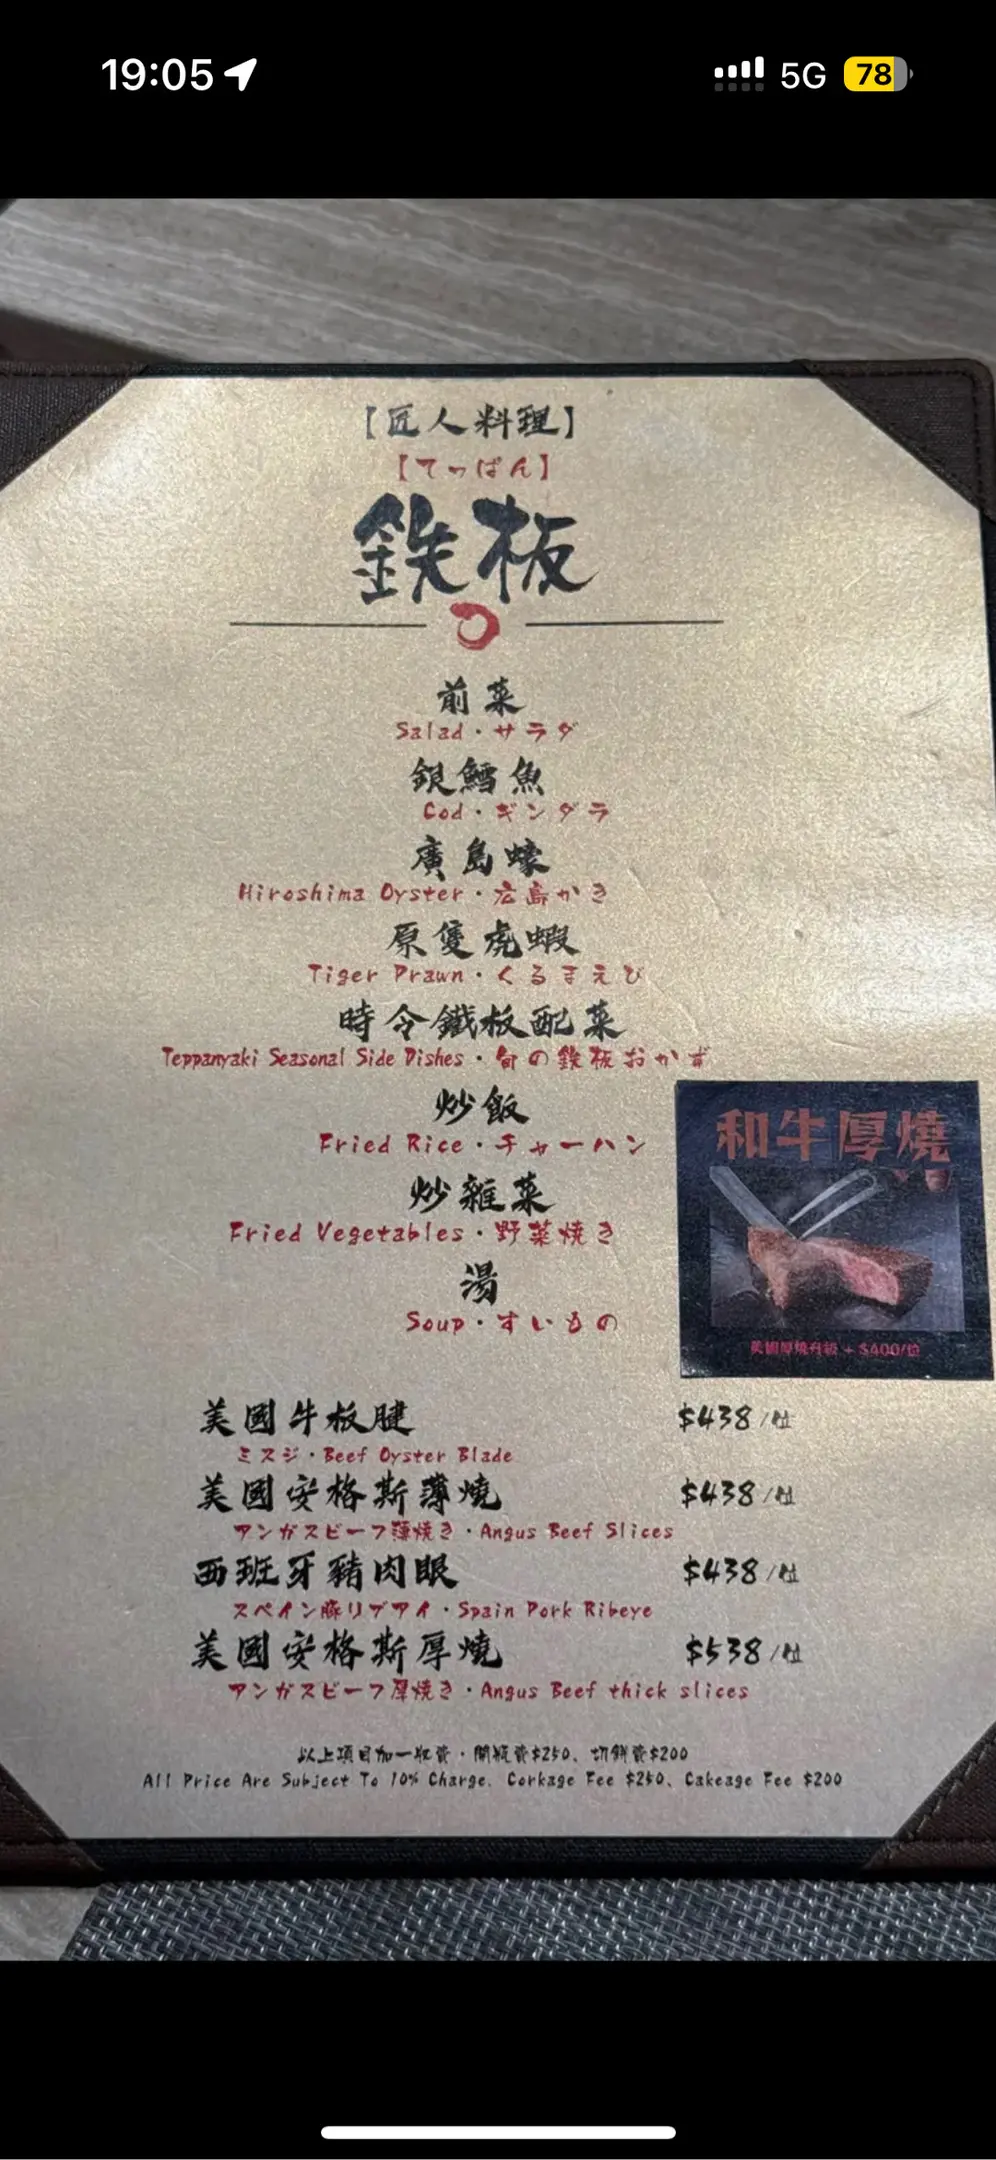 19:05
5G 78
【匠人料理】
【てっぱん】
鉄板
前菜
Salad・サラダ
銀鱈魚
Cod・ギンダラ
廣島蠔
Hiroshima Oyster・広島かき
原隻虎蝦
Tiger Prawn・くるまえび
時令鐵板配菜
Teppanyaki Seasonal Side Dishes・旬の鉄板おかず
炒飯
Fried Rice・チャーハン
炒雜菜
Fried Vegetables・野菜焼き
湯
Soup・すいもの
和牛厚燒
美國厚燒升級 + $400/位
美國牛板腱 $438/位
ミスジ・Beef Oyster Blade
美國安格斯薄燒 $438/位
アンガスビーフ薄焼き・Angus Beef Slices
西班牙豬肉眼 $438/位
スペイン豚リブアイ・Spain Pork Ribeye
美國安格斯厚燒 $538/位
アンガスビーフ厚焼き・Angus Beef thick slices
以上項目加一收費・開瓶費$250、切餅費$200
All Price Are Subject To 10% Charge. Corkage Fee $250、Cakeage Fee $200